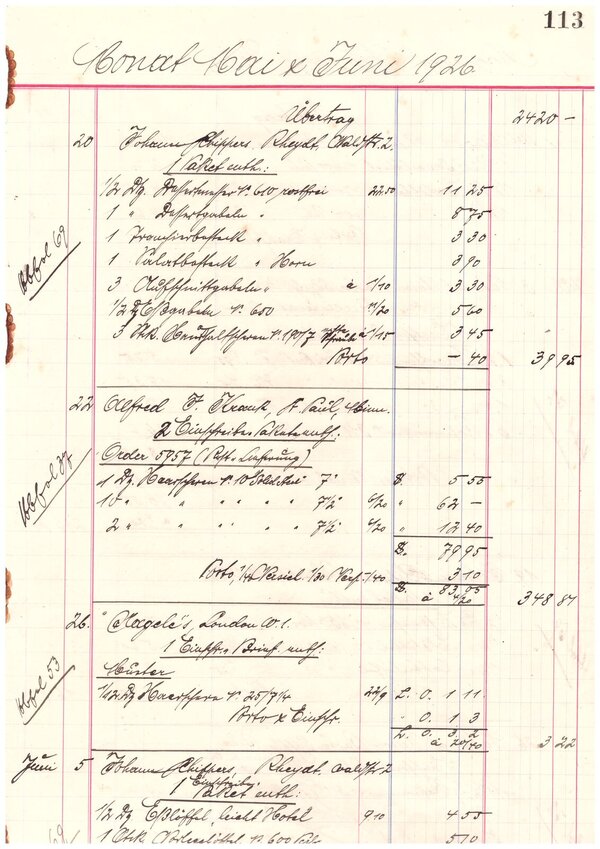 113
Monat Mai & Juni 1926
Übertrag 2420 –
20 Johann Rheydt, Waldstr. 2
1 Paket enth.:
1/2 Dz. Dessertmesser Nr. 610 rostfrei 22.50 11 25
1 " Dessertgabeln " 8 75
1 Tranchierbesteck " 3 30
1 Salatbesteck " Horn 3 90
3 Aufschnittgabeln " à 1/10 3 30
1/2 Dz Eßgabeln Nr. 650 11/20 5 60
3 Stk. Haushaltscheren à 1/15 3 45
Porto – 40 39 95
Abfol 69
22 Alfred F. Krank, St. Paul, Minn.
2 Einschreibe Pakete enth.:
Order 5957 (Rest-Lieferung)
1 Dz. Haarscheren Nr. 10 7" $. 5 55
10 " " " " " 7½" 6/20 " 62 –
2 " " " " " 7½" 6/20 " 12 40
$. 79 95
Porto, 3 10
$. 83.05
à 4/20 348 81
Abfol 37
26. Nagelé's, London W. 1.
1 Einschr. Brief enth.:
Muster
1/12 Dz Haarscheren Nr. 25/7¼ 22/9 L. 0. 1 11.
Porto & Einschr. " 0. 1 3
L. 0. 3. 2
à 20/40 3 22
Abfol 53
Juni 5 Johann Rheydt, Waldstr. 2
1 Einschreibe-
Paket enth:
1/2 Dz Eßlöffel, leicht Hotel 9 10 4 55
1 Stck. Nr. 600 5 10
69